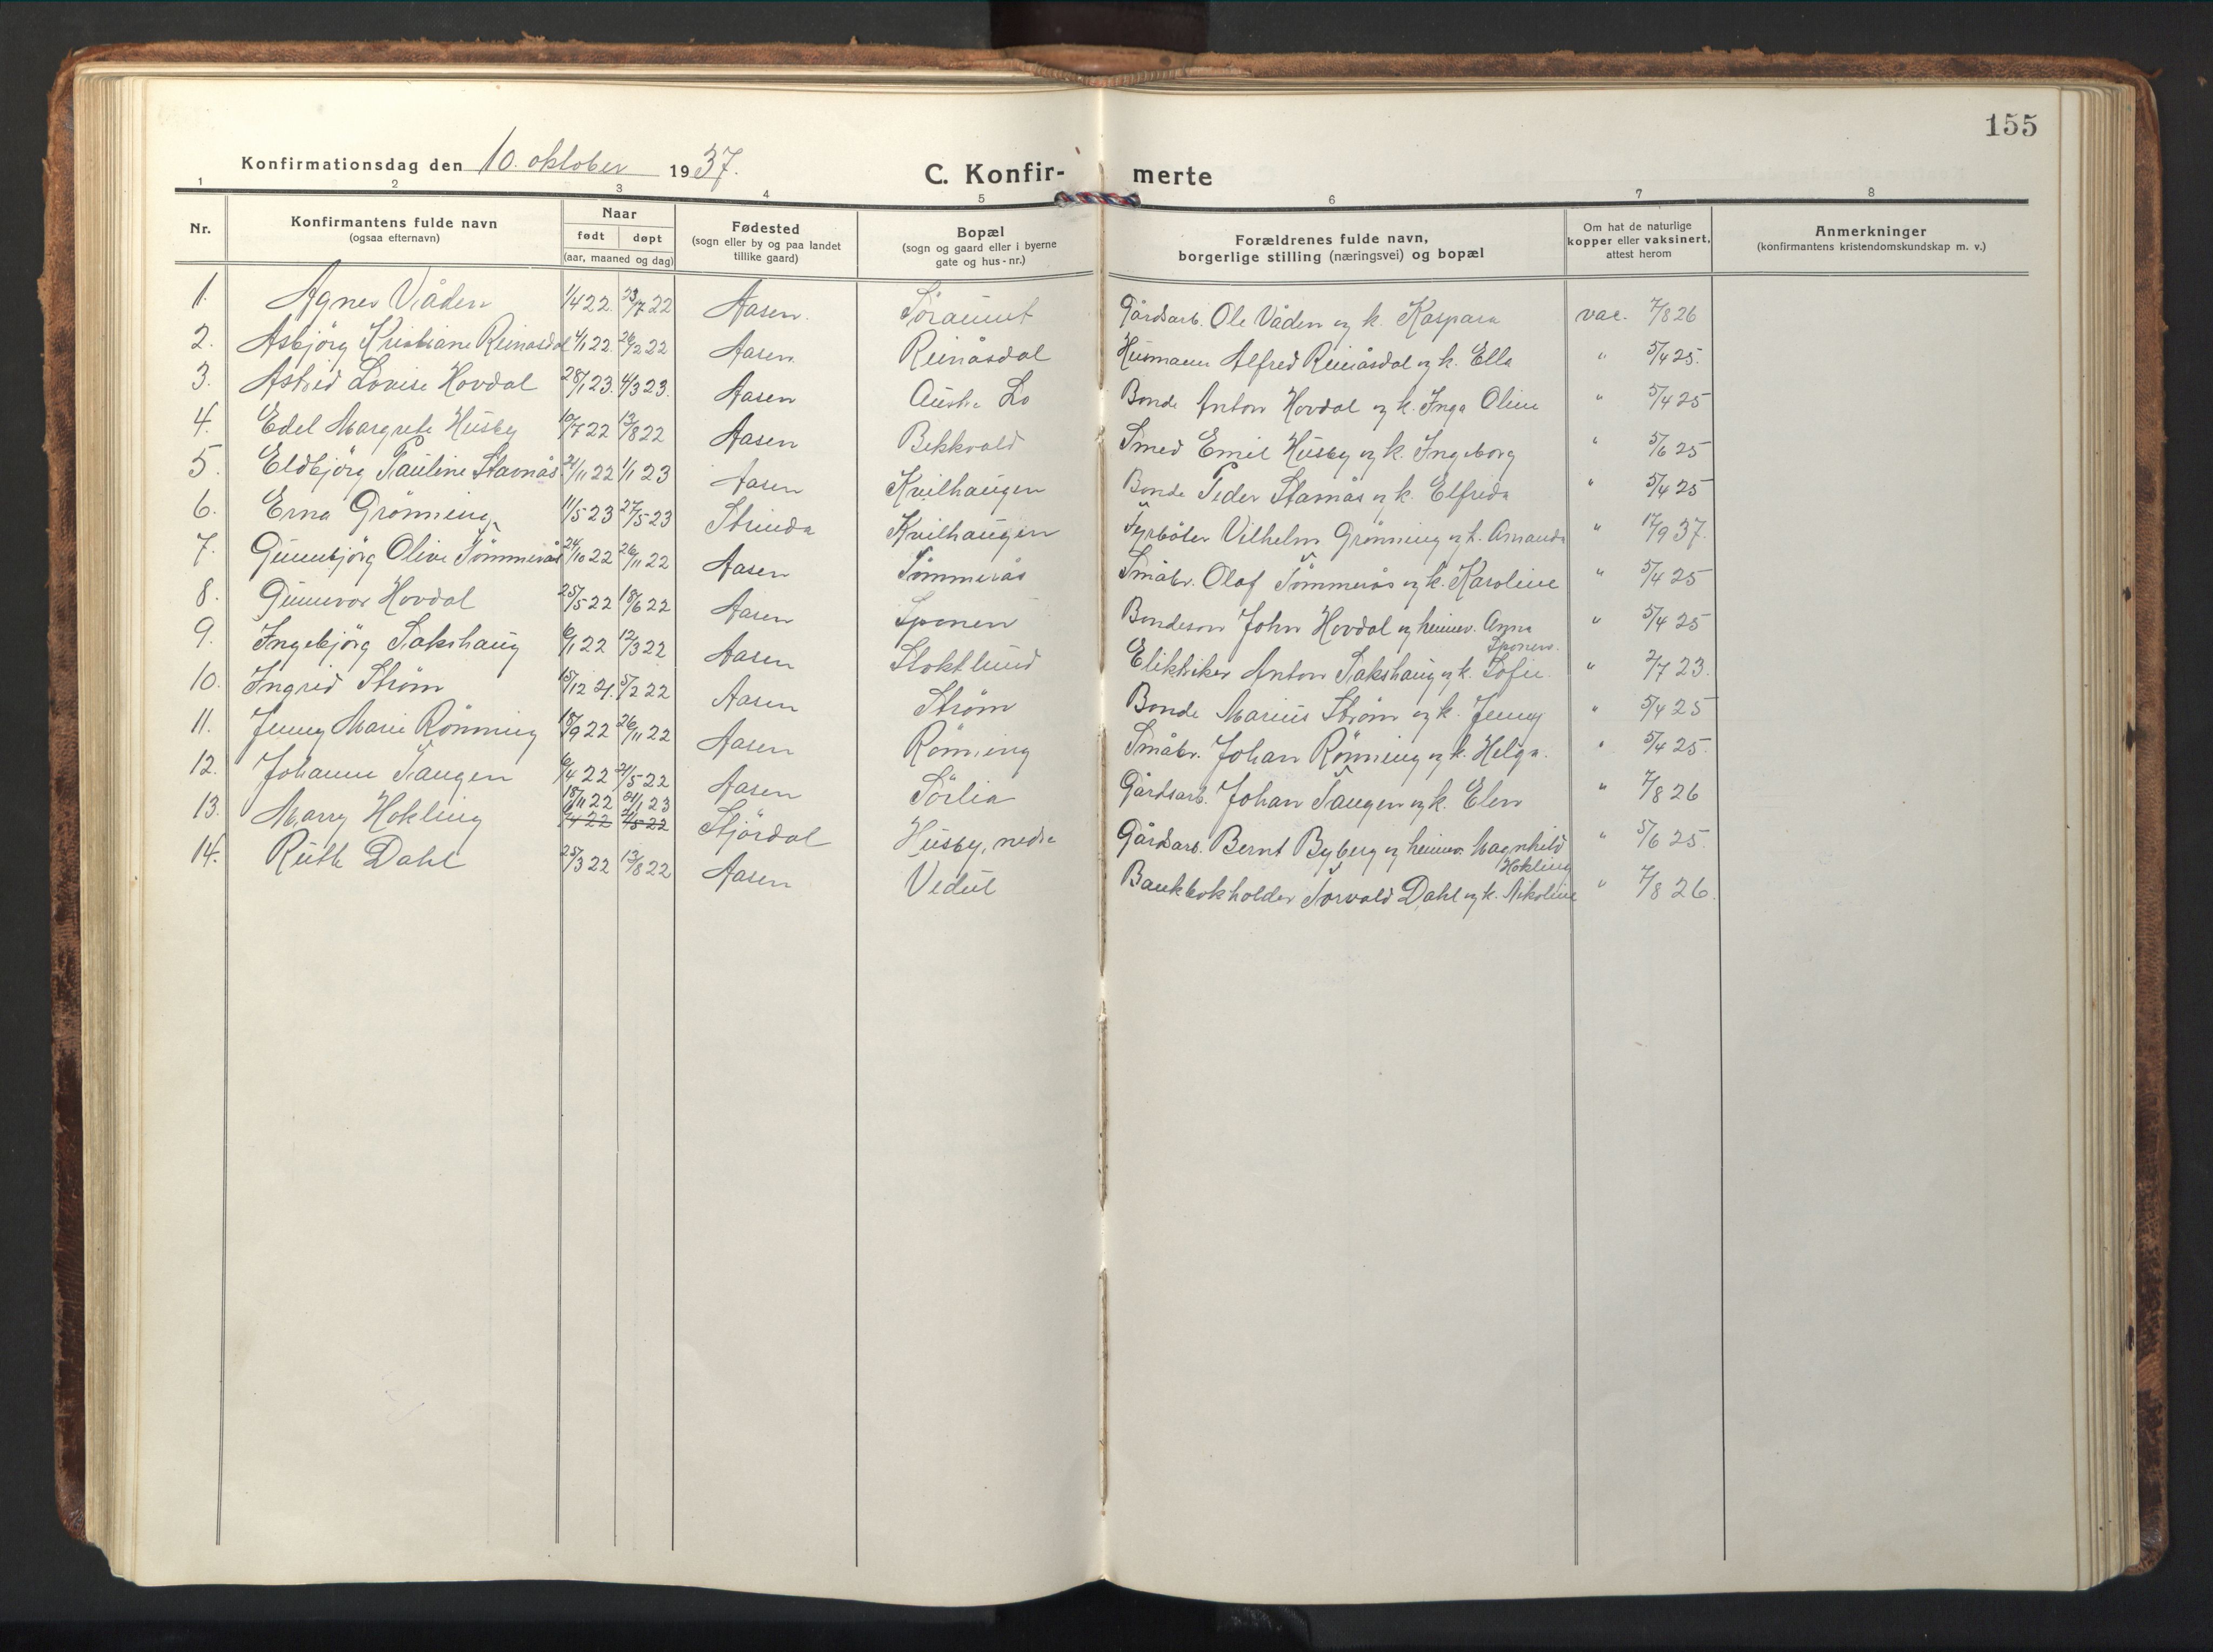 155
Konfirmationsdag den 10. oktober 1937.
C. Konfir- merte
1 2 3 4 5 6 7 8
Nr. | Konfirmantens fulde navn (ogsaa efternavn) | Naar født | døpt (aar, maaned og dag) | Fødested (sogn eller by og paa landet tillike gaard) | Bopæl (sogn og gaard eller i byerne gate og hus-nr.) | Forældrenes fulde navn, borgerlige stilling (næringsvei) og bopæl | Om hat de naturlige kopper eller vaksinert, attest herom | Anmerkninger (konfirmantens kristendomskundskap m. v.)
1. Agnes Våden 1/4 22. 23/7 22 Aasen. Søraunet Gårdsarb. Ole Våden og k. Kaspara vac. 7/8 26
2. Asbjörg Kristiane Reinåsdal 4/1 22. 26/2 22 Aasen. Reinåsdal Husmann Alfred Reinåsdal og k. Ella " 5/4 25.
3. Astrid Lovise Hovdal 28/1 23. 4/3 23. Aasen Austre Lo Bonde Anton Hovdal og k. Inga Oline " 5/4 25
4. Edel Margrete Husby 10/7 22 13/8 22 Aasen Bekkvold Smed Emil Husby og k. Ingeborg " 5/6 25
5. Eldbjörg Pauline Stamås 21/11 22 1/1 23 Aasen Kvilhaugen Bonde Peder Stamås og k. Elfreda " 5/4 25
6. Erna Grønning 11/5 23 27/5 23 Strinda Kvilhaugen Fyrböter Vilhelm Grønning og k. Amanda " 17/9 37.
7. Gunnbjörg Olive Tömmerås 24/10 22 26/11 22 Aasen Tömmerås Småbr. Olaf Tömmerås og k. Karoline " 5/4 25
8. Gunnvor Hovdal 25/5 22 18/6 22 Aasen Sponen Bondesøn John Hovdal og heimev. Anna Sponen. " 5/4 25
9. Ingebjörg Sakshaug 6/1 22 12/3 22 Aasen Stoktlund Elektriker Anton Sakshaug og k. Sofie. " 2/7 23.
10. Ingrid Strøm 15/12 21. 5/2 22 Aasen Strøm Bonde Marius Strøm og k. Jenny " 5/4 25
11. Jenny Marie Rönning 18/9 22 26/11 22 Aasen Rönning Småbr. Johan Rönning og k. Helga. " 5/4 25.
12. Johanne Tangen 6/4 22 21/5 22 Aasen Sörlia Gårdsarb. Johan Tangen og k. Elen " 7/8 26
18/11 22 21/1 23
13. Marry Hokling 6/4 22 21/5 22 Stjördal Husby, nedre Gårdsarb. Bernt Byberg og heimev. Magnhild Hokling " 5/6 25.
14. Ruth Dahl 25/3 22 13/8 22 Aasen Vedul Bankbokholder Torvald Dahl og k. Nikoline " 7/8 26.